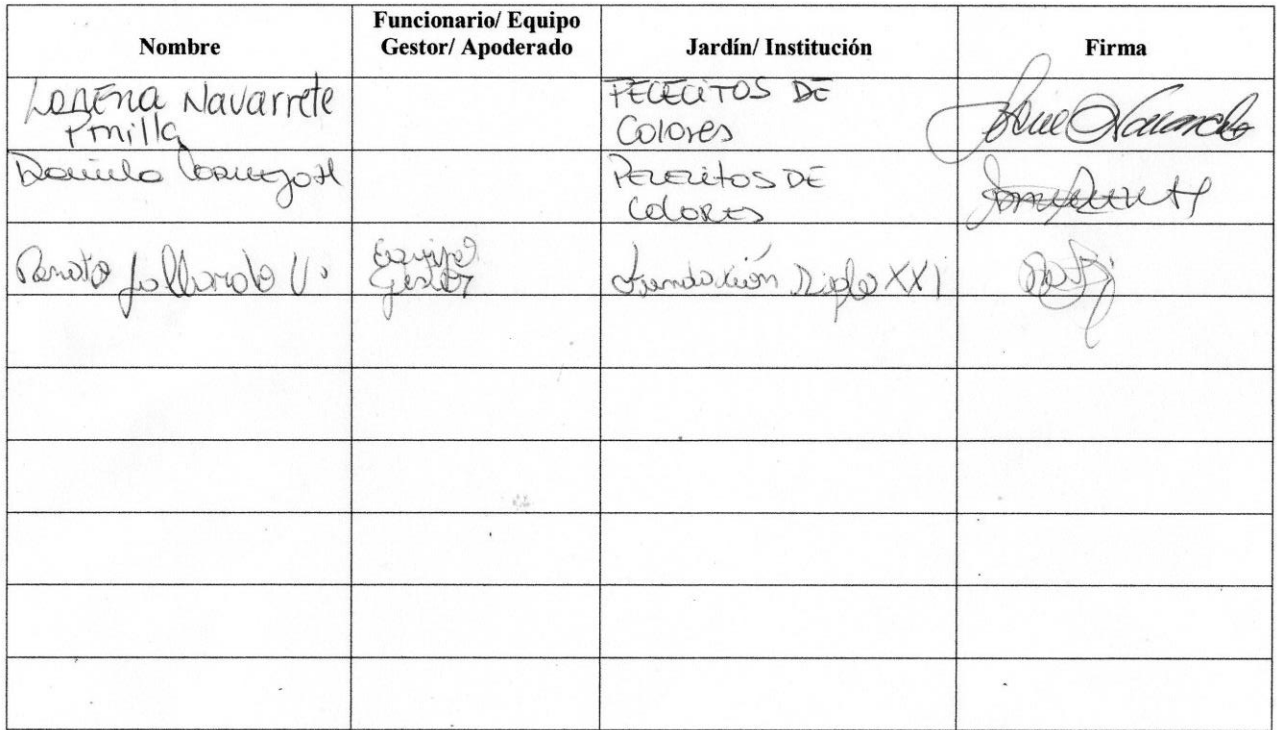 Nombre
Funcionario/ Equipo
Gestor/ Apoderado
Jardín/ Institución
Firma
Lorena Navarrete
Pinilla
PECECITOS DE
Colores
Daniela Cornejo H
PECECITOS DE
Colores
Renato Gallardo V.
Equipo
Gestor
Fundación Siglo XXI